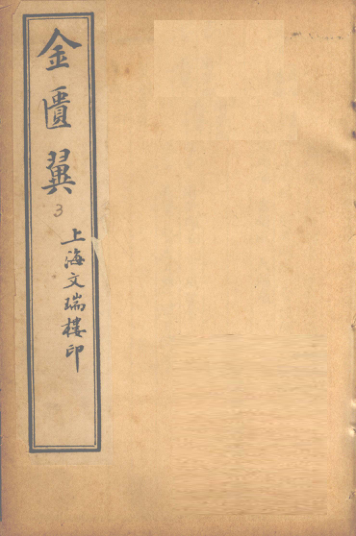 金匱翼
3
上海文瑞樓印